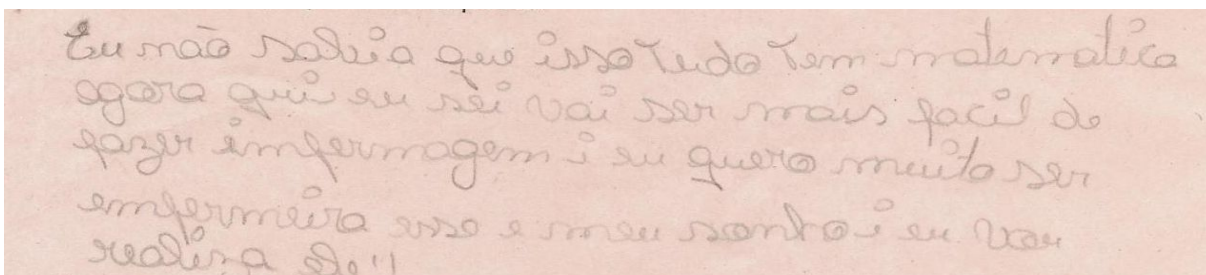 Eu não sabia que isso tudo tem matematica
agora qui eu sei vai ser mais facil de
fazer imfermagem i eu quero muito ser
emfermeira esso e meu sonho i eu vou
realiza